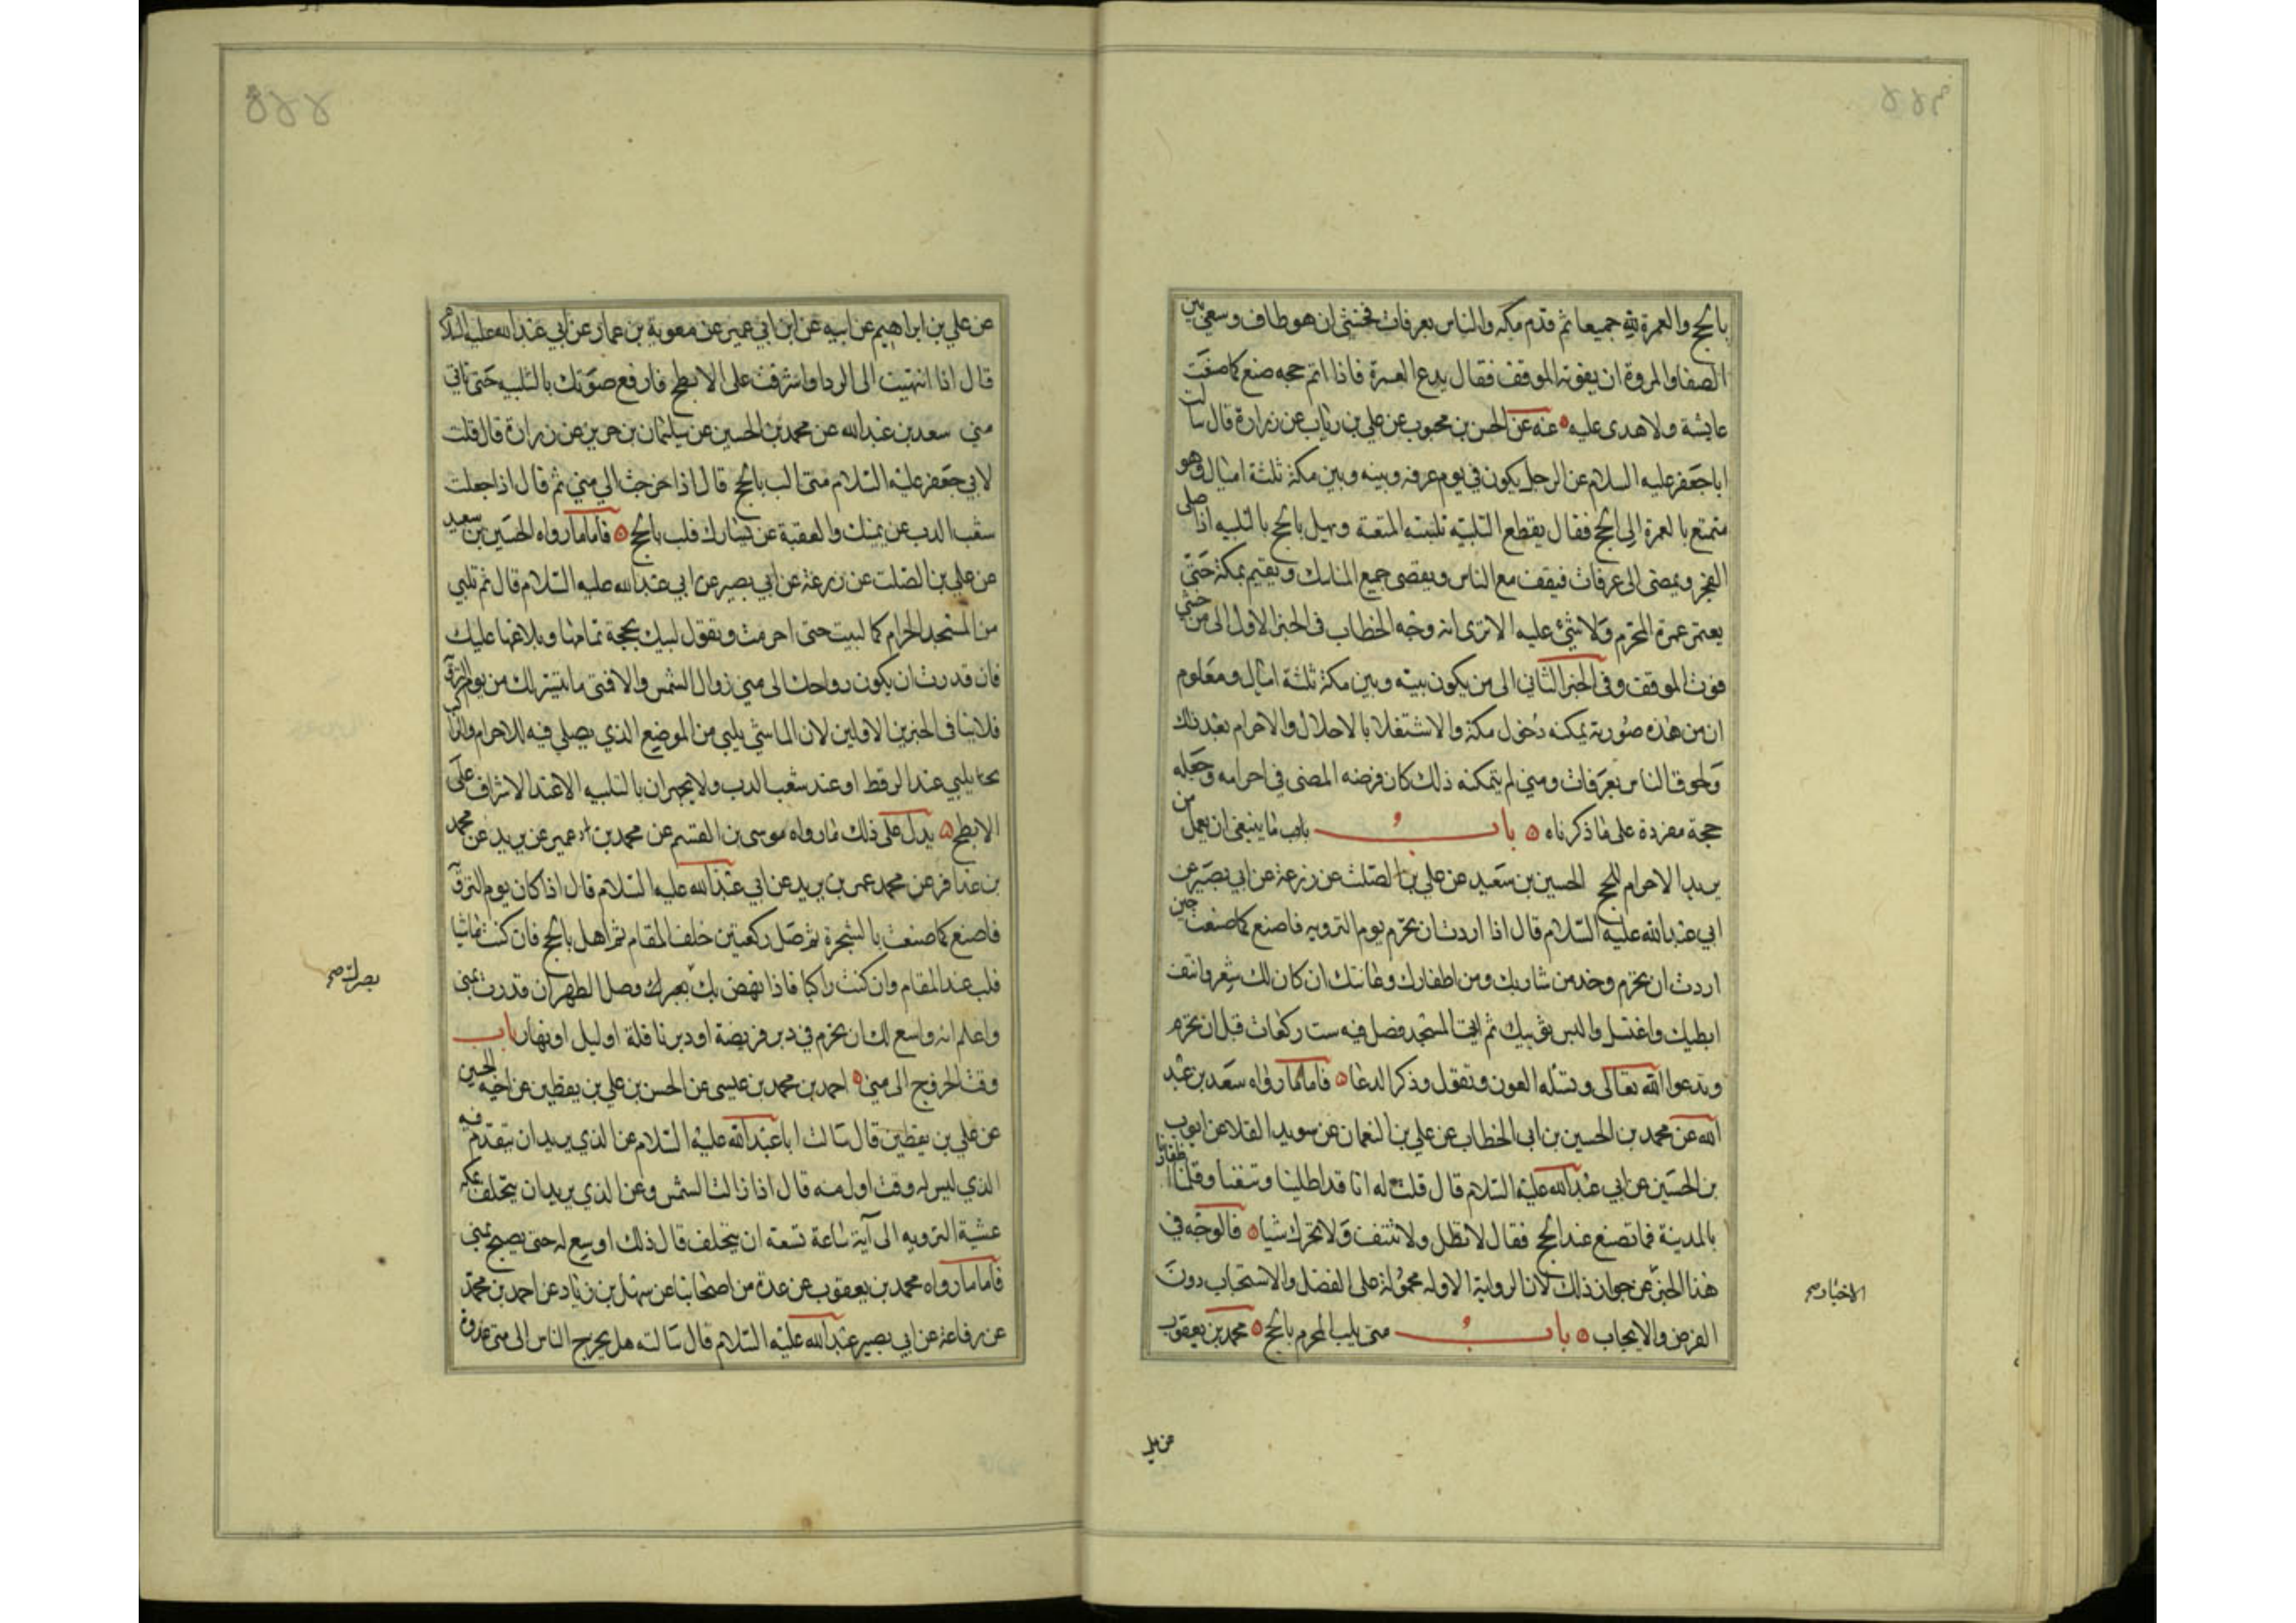 بالحج والعمرة لله جميعا ثم قدم مكه والناس بعرفات فخشي ان هو طاف وسعى بين
الصفا والمروة ان يفوته الموقف فقال يدع العمرة فاذا اتم حجه صنع كما صنعت
عايشة ولا هدى عليه عنه عن الحسن بن محبوب عن علي بن رياب عن زرارة قال سالت
ابا جعفر عليه السلام عن الرجل يكون في يوم عرفه وبينه وبين مكة ثلثة اميال وهو
متمتع بالعمرة الى الحج فقال يقطع التلبيه تلبية المتعة ويهل بالحج بالتلبيه اذا صلى
الفجر ويمضى الى عرفات فيقف مع الناس ويقضى جميع المناسك ويقيم بمكة حتى
يعتمر عمرة المحرم ولا شئ عليه الا ترى انه وجه الخطاب في الخبر الاول الى من خشي
فوت الموقف وفى الخبر الثاني الى من يكون بينه وبين مكة ثلثة اميال ومعلوم
ان من هذه صورته يمكنه دخول مكة والاشتغال بالاحلال والاحرام بعد ذلك
ولحوق الناس بعرفات ومتى لم يتمكنه ذلك كان فرضه المضى في احرامه وجعله
حجة مفردة على ما ذكرناه باب باب ما ينبغى ان يعمل من
يريد الاحرام للحج الحسين بن سعيد عن علي بن الصلت عن زرعة عن ابي بصير عن
ابي عبد الله عليه السلام قال اذا اردت ان تحرم يوم الترويه فاصنع كما صنعت حين
اردت ان تحرم وخذ من شاربك ومن اظفارك وعانتك ان كان لك شعر وانتف
ابطيك واغتسل والبس ثوبيك ثم ايت المسجد فصل فيه ست ركعات قبل ان تحرم
وتدعوا الله تعالى وتسئله العون وتقول وذكر الدعا فاما ما رواه سعد بن عبد
الله عن محمد بن الحسين بن ابى الخطاب عن علي بن النعمان عن سويد القلا عن ايوب
بن الحسين عن ابي عبد الله عليه السلام قال قلت له انا قد اطلينا ونتفنا وقلمنا اظفارنا
بالمدينة فما نصنع عند الحج فقال لا تطل ولا تنتف ولا تحرك شيا فالوجه في
هذا الخبر عن جواز ذلك لان الرواية الاوله محمولة على الفضل والاستحباب دون
الفرض والايجاب باب متى يلب المحرم بالحج محمد بن يعقوب
الاخبار صح
عن علي
عن علي بن ابراهيم عن ابيه عن ابن ابي عمير عن معوية بن عمار عن ابي عبد الله عليه السلام
قال اذا انتهيت الى الردا واشرفت على الابطح فارفع صوتك بالتلبيه حتى تاتي
منى سعد بن عبد الله عن محمد بن الحسين عن سليمان بن حريز عن زرارة قال قلت
لابي جعفر عليه السلام متى الب بالحج قال اذا خرجت الى منى ثم قال اذا جعلت
شعب الدب عن يمينك والعقبة عن يسارك فلب بالحج فاما ما رواه الحسين بن سعيد
عن علي بن الصلت عن زرعة عن ابي بصير عن ابي عبد الله عليه السلام قال ثم تلبي
من المسجد الحرام كما لبيت حتى احرمت وتقول لبيك بحجة تمامها وبلاغها عليك
فان قدرت ان يكون رواحك الى منى زوال الشمس والا فمتى ما تيسر لك من يوم التروية
فلا ينافى الخبرين الاولين لان الماشي يلبي من الموضع الذي يصلي فيه للاحرام والراكب
يلبي عند الرقطا او عند شعب الدب ولا يجهران بالتلبيه الا عند الاشراف على
الابطح يدل على ذلك ما رواه موسى بن القسم عن محمد بن عمير عن يزيد عن محمد
بن عذافر عن محمد عمر بن يزيد عن ابي عبد الله عليه السلام قال اذا كان يوم التروية
فاصنع كما صنعت بالشجرة ثم صل ركعتين خلف المقام ثم اهل بالحج فان كنت ماشيا
فلب عند المقام وان كنت راكبا فاذا نهض بك بعيرك وصل الظهر ان قدرت بمنى
واعلم انه واسع لك ان تحرم في دبر فريضة او دبر نافلة او ليل او نهار باب
وقت الخروج الى منى احمد بن محمد بن عيسى عن الحسن بن علي بن يقطين عن اخيه الحسين
عن علي بن يقطين قال سالت ابا عبد الله عليه السلام عن الذي يريد ان يتقدم فيه
الذي ليس له وقت اول منه قال اذا زالت الشمس وعن الذي يريد ان يتخلف بمكة
عشية الترويه الى آية ساعة تسعه ان يتخلف قال ذلك اوسع له حتى يصبح بمنى
فاما ما رواه محمد بن يعقوب عن عدة من اصحابنا عن سهل بن زياد عن احمد بن محمد
عن رفاعة عن ابي بصير عبد الله عليه السلام قال سالته هل يخرج الناس الى منى غدوة